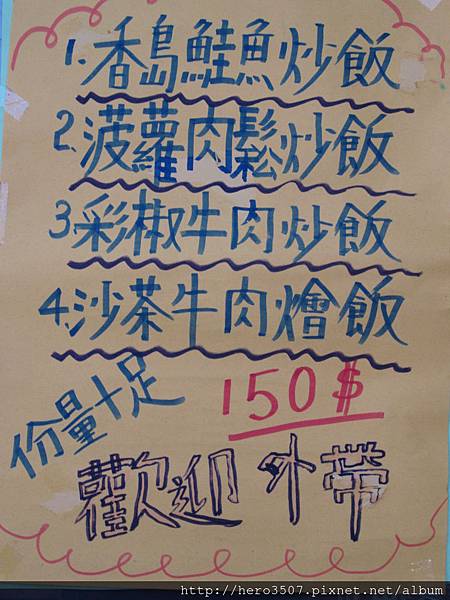 1.香島鮭魚炒飯
2.菠蘿肉鬆炒飯
3.彩椒牛肉炒飯
4.沙茶牛肉燴飯
份量十足
150$
歡迎外帶
http://hero3507.pixnet.net/album